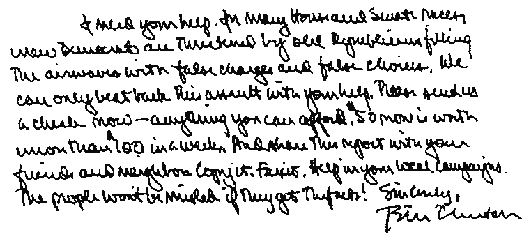 I need your help. In many House and Senate races
new Democrats are threatened by old Republicans filling
the airwaves with false charges and false choices. We
can only beat back this assault with your help. Please send us
a check now — anything you can afford. $50 now is worth
more than $100 in a week. And share this report with your
friends and neighbors. Copy it. Fax it. Help in your local campaigns.
The people won't be misled if they get the facts! Sincerely,
Bill Clinton